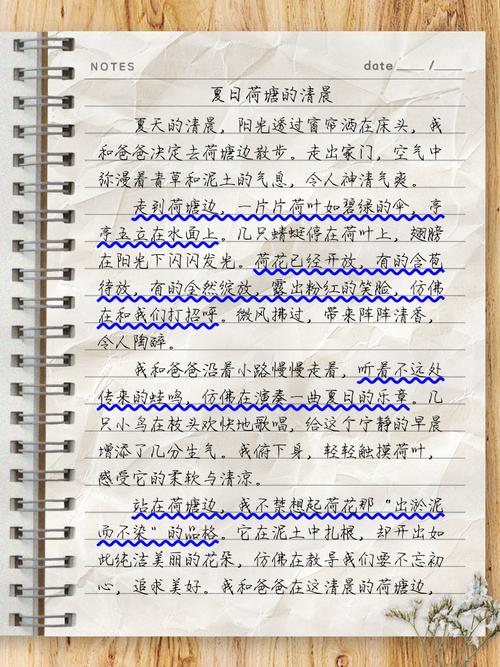 NOTES date____ /____
夏日荷塘的清晨
夏天的清晨，阳光透过窗帘洒在床头，我
和爸爸决定去荷塘边散步。走出家门，空气中
弥漫着青草和泥土的气息，令人神清气爽。
走到荷塘边，一片片荷叶如碧绿的伞，亭
亭玉立在水面上。几只蜻蜓停在荷叶上，翅膀
在阳光下闪闪发光。荷花已经开放，有的含苞
待放，有的全然绽放，露出粉红的笑脸，仿佛
在和我们打招呼。微风拂过，带来阵阵清香，
令人陶醉。
我和爸爸沿着小路慢慢走着，听着不远处
传来的蛙鸣，仿佛在演奏一曲夏日的乐章。几
只小鸟在枝头欢快地歌唱，给这个宁静的早晨
增添了几分生气。我俯下身，轻轻触摸荷叶，
感受它的柔软与清凉。
站在荷塘边，我不禁想起荷花那“出淤泥
而不染”的品格。它在泥土中扎根，却开出如
此纯洁美丽的花朵，仿佛在教导我们要不忘初
心，追求美好。我和爸爸在这清晨的荷塘边，